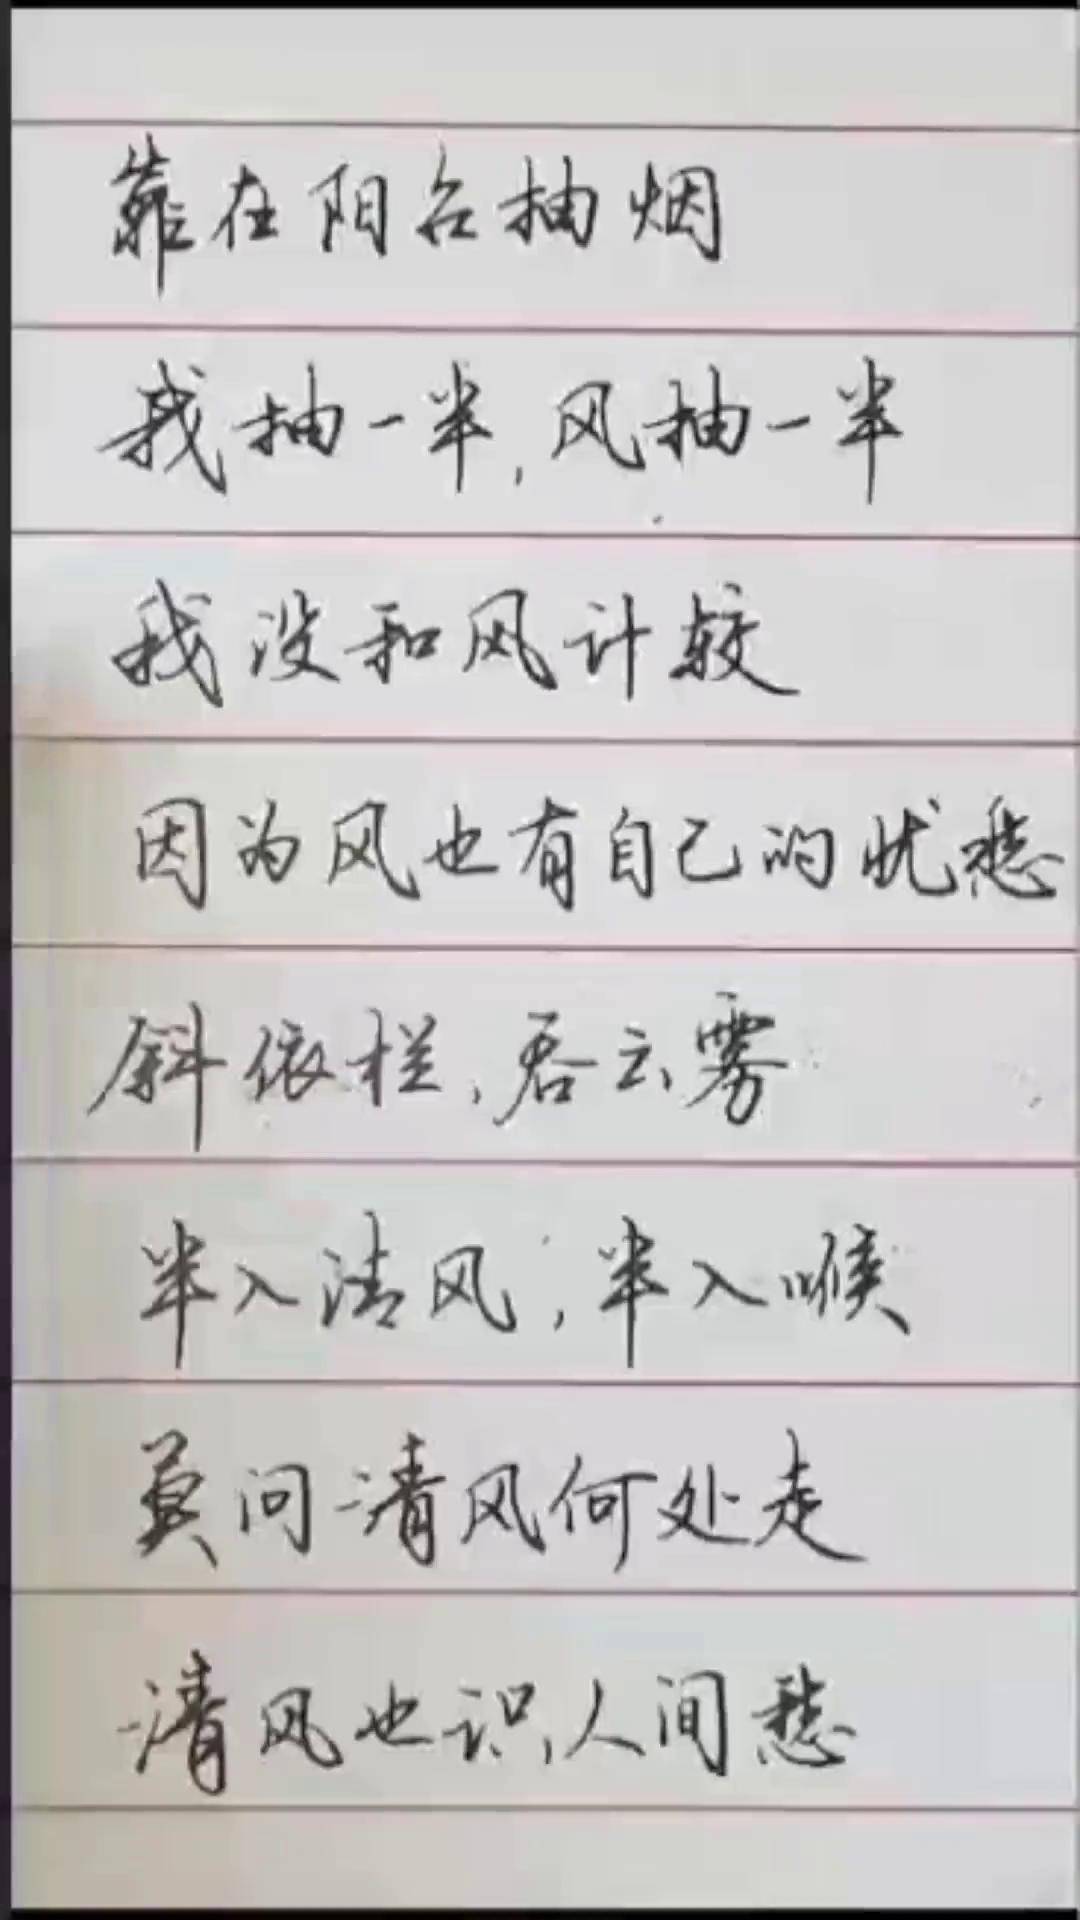 靠在阳台抽烟
我抽一半,风抽一半
我没和风计较
因为风也有自己的忧愁
斜依栏,吞云雾
半入清风,半入喉
莫问清风何处走
清风也识人间愁